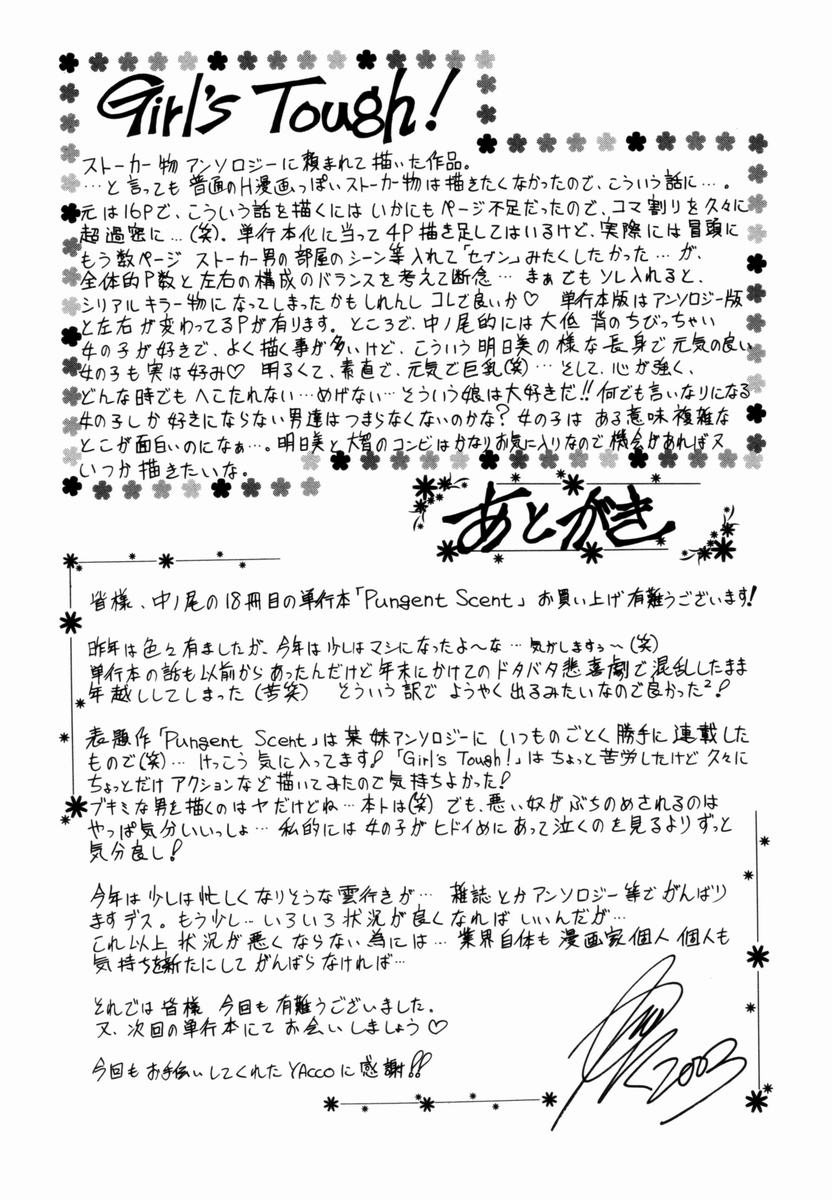 Girl's Tough!
ストーカー物アンソロジーに頼まれて描いた作品。
…と言っても普通のH漫画っぽいストーカー物は描きたくなかったので、こういう話に…。
元は16Pで、こういう話を描くにはいかにもページ不足だったので、コマ割りを久々に
超過密に…(笑)。単行本化に当って4P描き足してはいるけど、実際には冒頭に
もう数ページ ストーカー男の部屋のシーン等入れて「セブン」みたくしたかった…が、
全体的P数と左右の構成のバランスを考えて断念… まぁでもソレ入れると、
シリアルキラー物になってしまったかもしれんし コレで良いか♡ 単行本版はアンソロジー版
と左右が変わってるPが有ります。ところで、中ノ尾的には大低 背のちびっちゃい
女の子が好きで、よく描く事が多いけど、こういう明日美の様な長身で元気の良い
女の子も実は好み♡ 明るくて、素直で、元気で巨乳(笑)…そして、心が強く、
どんな時でもへこたれない…めげない…そういう娘は大好きだ!!何でも言いなりになる
女の子しか好きにならない男達はつまらなくないのかな?女の子はある意味複雑な
とこが面白いのになぁ…。明日美と大智のコンビはかなりお気に入りなので機会があれば又
いつか描きたいな。
あとがき
皆様、中ノ尾の18冊目の単行本「Pungent Scent」お買い上げ有難うございます!
昨年は色々有ましたが、今年は少しはマシになったよ〜な…気がしますぅ〜(笑)
単行本の話も以前からあったんだけど年末にかけてのドタバタ悲喜劇で混乱したまま
年越ししてしまった(苦笑) そういう訳で ようやく出るみたいなので良かった²!
表題作「Pungent Scent」は某妹アンソロジーにいつものごとく勝手に連載した
もので(笑)… けっこう気に入ってます!「Girl's Tough!」はちょっと苦労したけど久々に
ちょっとだけアクションなど描いてみたので気持ちよかった!
ブキミな男を描くのはヤだけどね…本トは(笑) でも、悪い奴がぶちのめされるのは
やっぱ気分いいっしょ… 私的には女の子がヒドイめにあって泣くのを見るよりずっと
気分良し!
今年は少しは忙しくなりそうな雲行きが… 雑誌とかアンソロジー等でがんばり
ますデス。もう少し…いろいろ状況が良くなればいいんだが…
これ以上 状況が悪くならない為には… 業界自体も漫画家個人個人も
気持ちを新たにしてがんばらなければ…
それでは皆様 今回も有難うございました。
又、次回の単行本にてお会いしましょう♡
今回もお手伝いしてくれたYAccoに感謝!!
2003